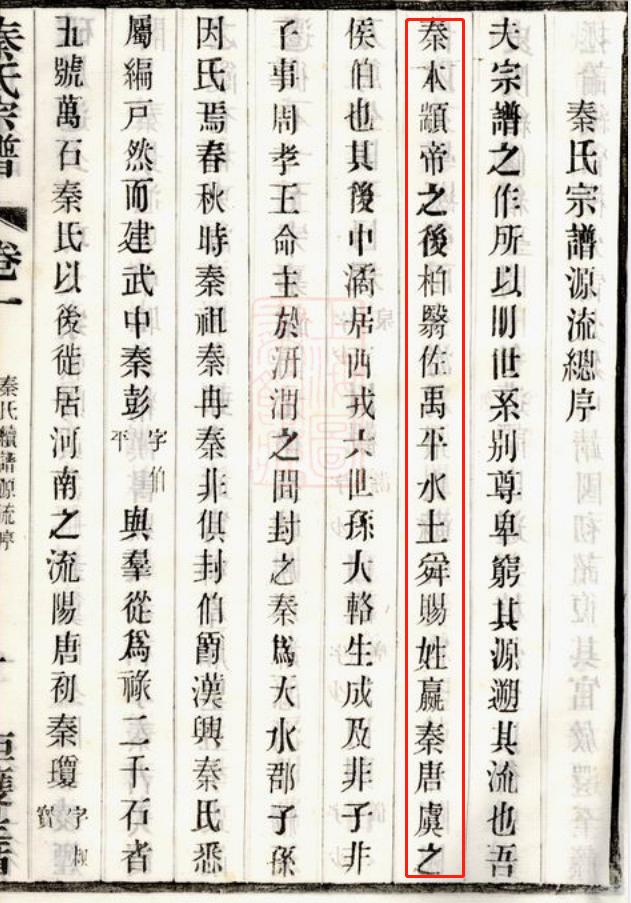 秦氏宗譜源流總序
夫宗譜之作所以明世系别尊卑窮其源遡其流也吾
秦本顓帝之後柏翳佐禹平水土舜賜姓嬴秦唐虞之
侯伯也其後中潏居西戎六世孫大輅生成及非子非
子事周孝王命主於汧渭之間封之秦爲天水郡子孫
因氏焉春秋時秦祖秦冉秦非俱封伯爵漢興秦氏悉
屬編戸然而建武中秦彭字伯平與羣從爲祿二千石者
五號萬石秦氏以後徙居河南之流陽唐初秦瓊字叔寳
秦氏宗譜 卷一 秦氏續譜源流序